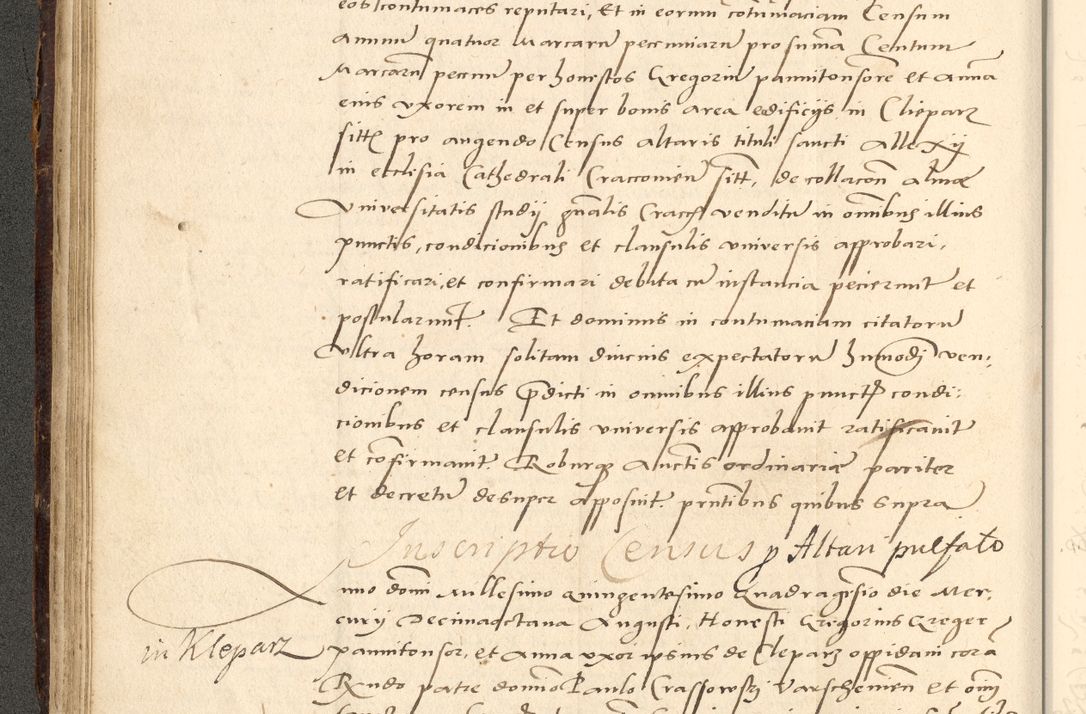 eos contumaces reputari, Et in eorum cotumaciam Censum
annuum quatuor Marcarũ pecuniarũ pro summa Centum
Marcarũ pecunie per honestos Gregoriũ pannitonsorẽ et Annã
eius uxorem in et super bonis area edificijs in Clieparz
sitt pro augendo Census altaris tituli sancti Allexij
in ecclesia Cathedrali Craccovien sitt, de collacoñ almæ
Universitatis studij gñalis Cracc venditũ in omnibus illius
punctis, condicionibus et clausulis universis approbari,
ratificari, et confirmari debita cũ instancia pecierunt et
postularunt. Et dominus in contumaciam citatorũ
Ultra horam solitam diucius expectatorũ hũmodi ven,
dicionem census p̃dicti in omnibus illius punct condi,
cionibus et clausulis universis approbavit ratificavit
et cõfirmavit. Roburqz Auctis ordinariæ pariter
et decretũ desuper apposuit. pñtibus quibus supra
Inscriptio Census p Altari pulsato
nno domi Millesimo Quingentesimo Quadragesio die Mer,
curij Decimaoctava Augusti, Honesti Gregorius Greger
in Kleparz
pannitonsor, et Anna uxor ipsius de Cleparz oppidani corã
Rñdo patre domino Paulo Crassowski Varschevien et